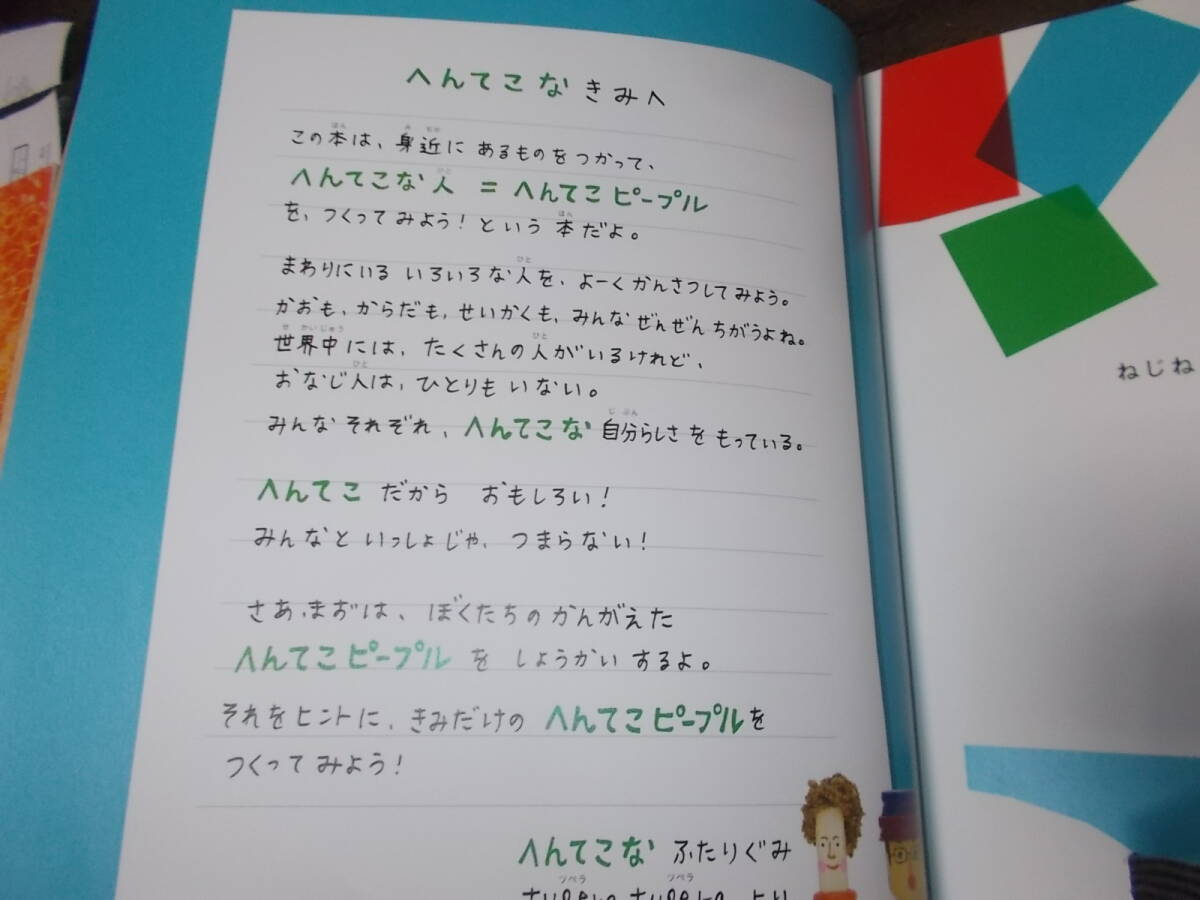 へんてこな きみへ
この本は、身近に あるものを つかって、
へんてこな人 = へんてこピープル
を、つくって みよう! という 本だよ。
まわりにいる いろいろな人を、よーく かんさつして みよう。
かおも、からだも、せいかくも、みんな ぜんぜん ちがうよね。
世界中には、たくさんの人が いるけれど、
おなじ人は、ひとりも いない。
みんな それぞれ、へんてこな 自分らしさを もっている。
へんてこ だから おもしろい!
みんなと いっしょじゃ、つまらない!
さあ、まずは、ぼくたちの かんがえた
へんてこピープル を しょうかい するよ。
それを ヒントに、きみだけの へんてこピープルを
つくって みよう!
へんてこな ふたりぐみ
tupera tupera より
ねじね